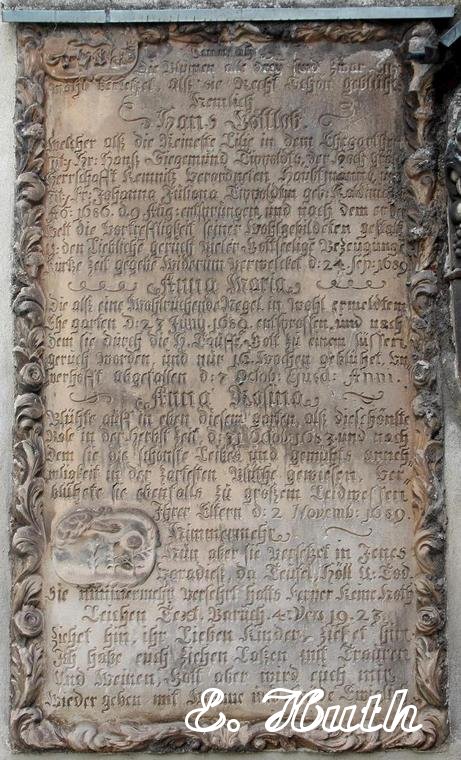 Die Blumen alle drey sind zwar itzt
wohl verwelckt, alß sie Recht schön geblüht
Nemlich
Hans Gottlob.
Welcher alß die Reineste Lilie in dem Ehegarthen
Hr: Hanß Siegemund Tippoldts, der Hoch gräf
Herrschafft Kemnitz Verordneten Haubtmanns, u:
Fr: Johanna Juliana Tippoldtin geb:
Ao: 1686. d. 9 Aug: entsprungen und nach dem er der
Welt die Vortreffligkeit seiner Wohlgebildeten gestalt
u: den Liebliche geruch Vieler Gottseelige Bezeugung
kurtze Zeit gegebe Widerum verwelcket d: 24 Sep: 1689
Anna Maria
Die alß eine Wohlrüchende Negel, in wohl ermeldtem
Ehe garten d: 23 Juny 1689 entsprossen, und nach
dem sie durch die H. Tauffe, Gott zu einem süssen
geruch worden, und nur 16 Wochen geblühet, Vn
verhofft abgefallen d: 7 Octob: Eiusd: Anni.
Anna Rosina
Blühte auff in eben diesem garten, alß die schönste
Rose in der Herbst Zeit, d: 31 Octob: 1683 und nach
dem sie die schönste Leibes und gemühts anneh
mligkeit in der zartesten Blüthe gewiesen, Ver
blühete sie ebenfalls zu großem Leidwessen
Ihrer Eltern d: 2 Novemb: 1689.
Nimmermehr
Nun aber sie Versetzet in Jenes
Paradieß, da Teufel, Höll u: Tod.
Sie nimmermehr Versehrt hatts ferner Keine Noth
Leichen Text. Baruch. 4. Vers 19. 23.
Ziehet hin, ihr Lieben Kinder, Ziehet hin.
Ich habe euch Ziehen Laßen mit Trauren
Und Weinen, Gott aber wird euch mir
Wieder geben mit
E. Huth